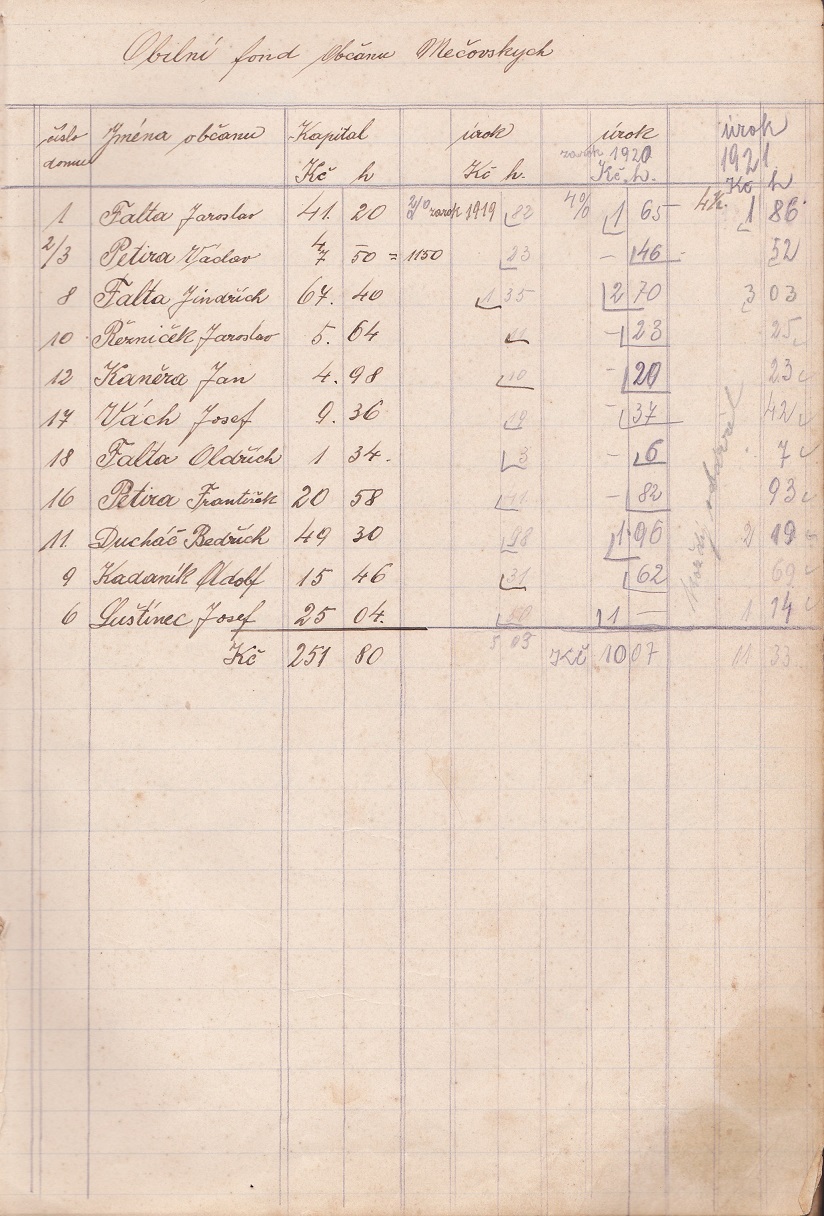 Obilní fond Občanu Mečovskych
číslo domu Jména občanu Kapital Kč h úrok Kč h. úrok zarok 1920 Kč. h. úrok 1921 Kč h
1 Falta Jaroslav 41. 20 2% zarok 1919 82 4% 1 65 4%. 1 86
2/3 Petira Václav 4 7 50 = 1150 23 - 46 52
8 Falta Jindřich 67. 40 1 35 2 70 3 03
10 Řezníček Jaroslav 5. 64 11 - 23 25
12 Kaněra Jan 4. 98 10 - 20 23
17 Vách Josef 9. 36 19 - 37 42
18 Falta Oldřich 1 34. 3 - 6 7
16 Petira František 20 58 41 - 82 93
11. Ducháč Bedřich 49 30 98 1 96 2 19
9 Kadaník Adolf 15 46 31 62 69
6 Luštinec Josef 25 04. 50 1 - 1 14
Kč 251 80 5 03 Kč 10 07 11 33